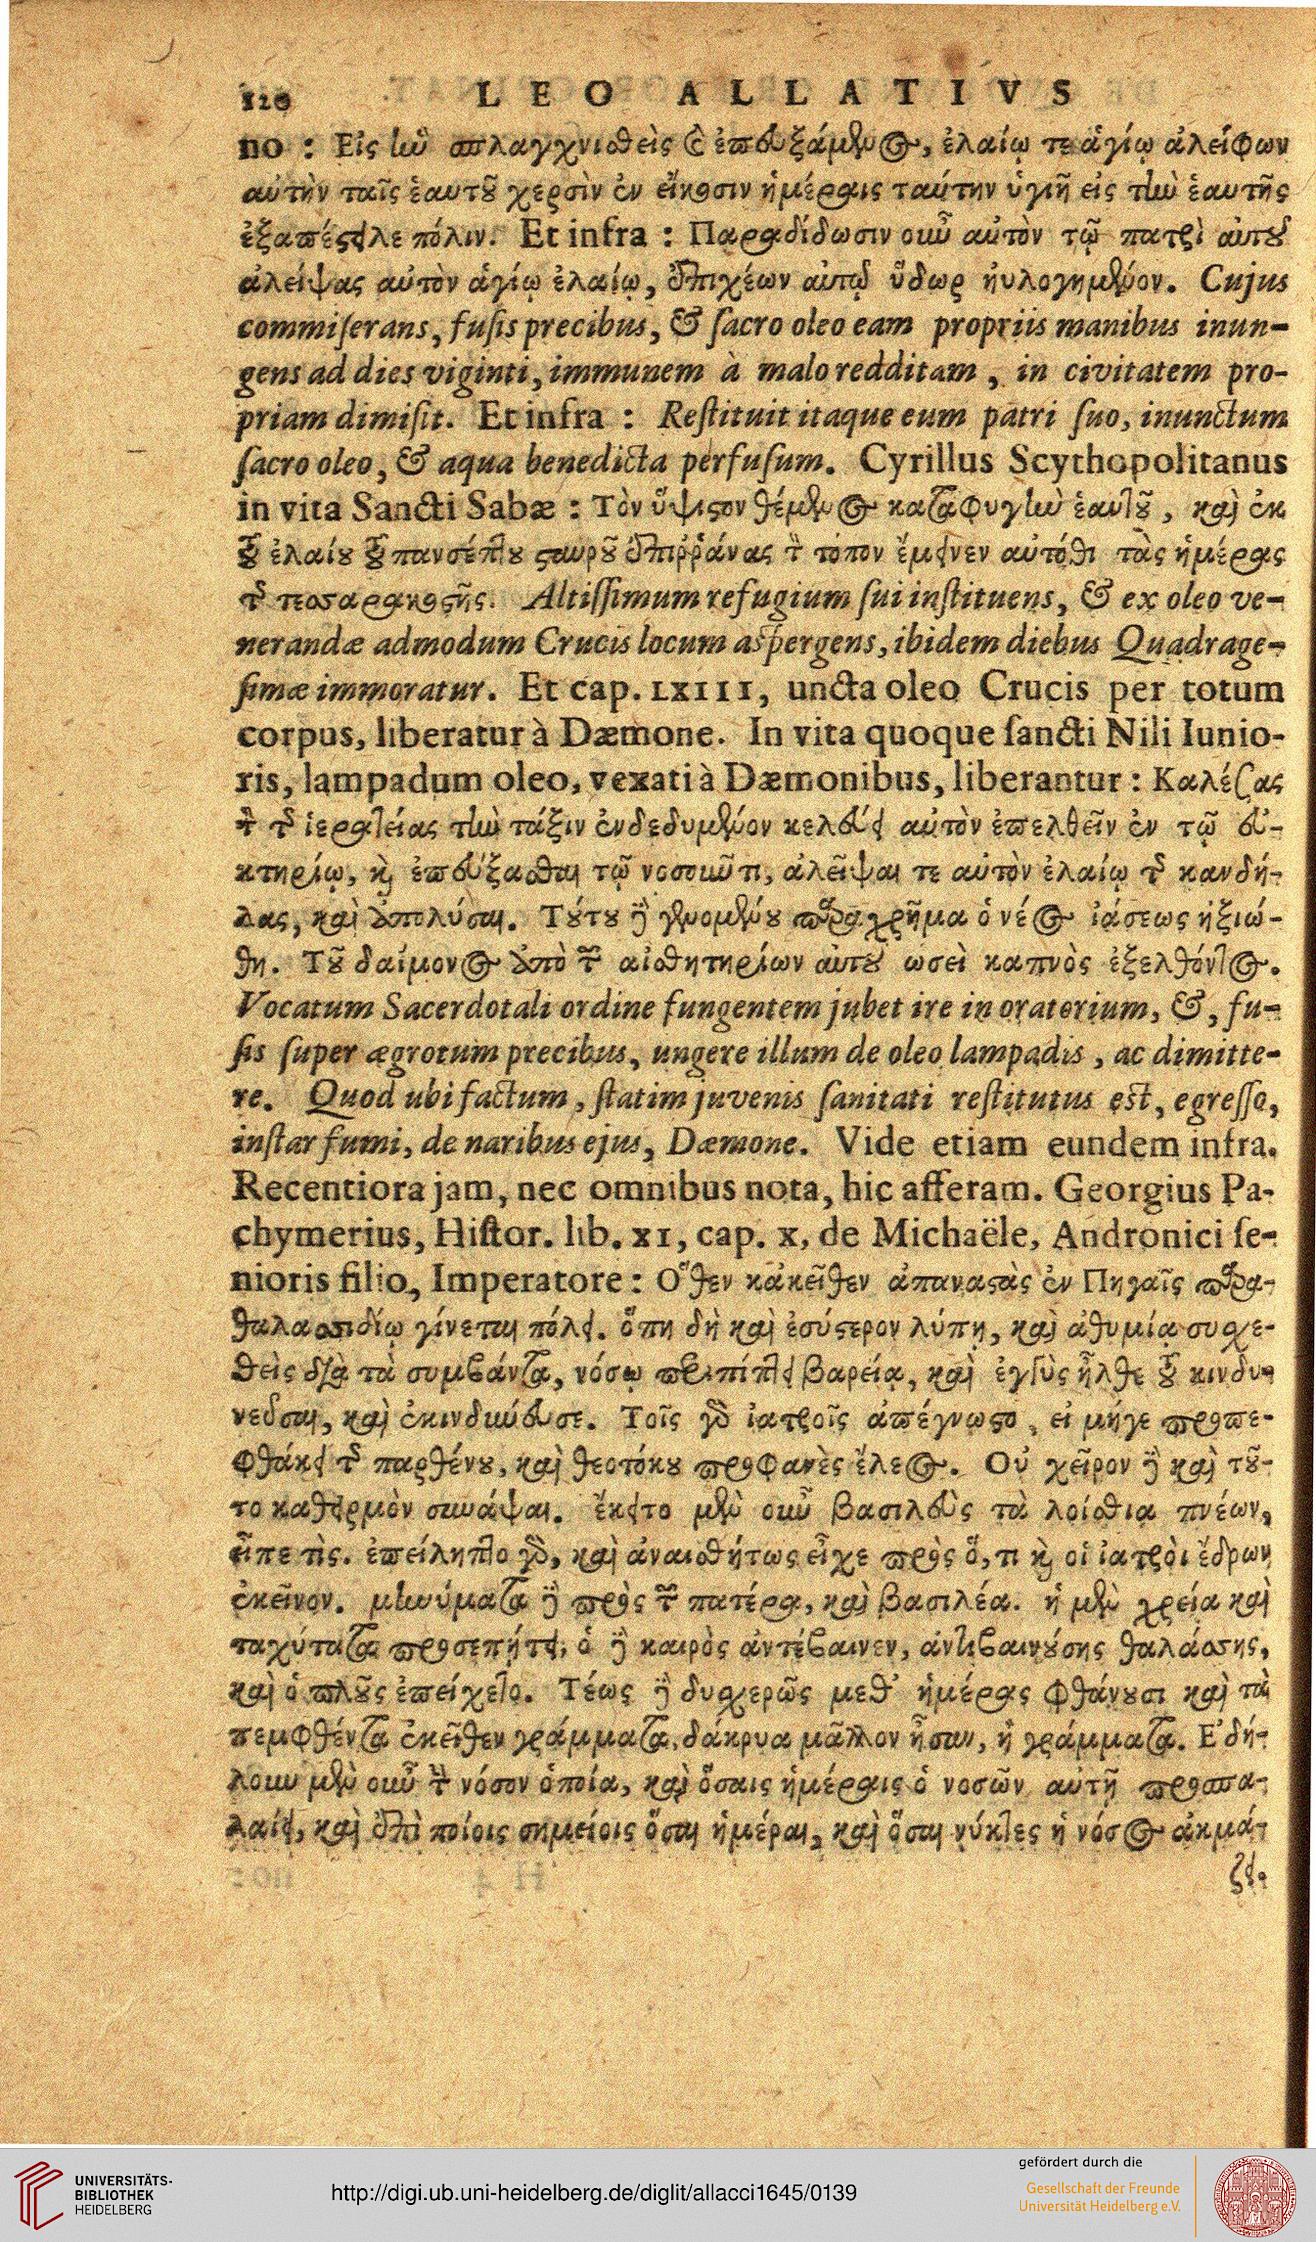 120 LEO ALLATIVS
no : Εἰς ἣν σπλαγχνισθεὶς καὶ ἐπευξάμενος, ἐλαίῳ τε ἁγίῳ ἀλείφων
αὐτὴν ταῖς ἑαυτοῦ χερσὶν ἐν εἴκοσιν ἡμέραις ταύτην ὑγιῆ εἰς τὴν ἑαυτῆς
ἐξαπέστειλε πόλιν. Et infra : Παραδίδωσιν οὖν αὐτὸν τῷ πατρὶ αὐτοῦ
ἀλείψας αὐτὸν ἁγίῳ ἐλαίῳ, ἐπιχέων αὐτῷ ὕδωρ ηὐλογημένον. Cujus
commiſerans, fuſis precibus, & ſacro oleo eam propriis manibus inun-
gens ad dies viginti, immunem à malo redditam, in civitatem pro-
priam dimiſit. Et infra : Reſtituit itaque eum patri ſuo, inunctum
ſacro oleo, & aqua benedicta perfuſum. Cyrillus Scythopolitanus
in vita Sancti Sabæ : Τὸν ὕψιστον θέμενος καταφυγὴν ἑαυτοῦ, καὶ ἐκ
τοῦ ἐλαίου τοῦ πανσέπτου σταυροῦ ἐπιῤῥάνας τὸν τόπον ἔμεινεν αὐτόθι τὰς ἡμέρας
τῆς τεσσαρακοστῆς. Altiſſimum refugium ſui inſtituens, & ex oleo ve-
nerandæ admodum Crucis locum aſpergens, ibidem diebus Quadrage-
ſimæ immoratur. Et cap. LXIII, uncta oleo Crucis per totum
corpus, liberatur à Dæmone. In vita quoque ſancti Nili Iunio-
ris, lampadum oleo, vexati à Dæmonibus, liberantur : Καλέσας
τὸν τῆς ἱερατείας τὴν τάξιν ἐνδεδυμένον κελεύει αὐτὸν ἐπελθεῖν ἐν τῷ εὐ-
κτηρίῳ, καὶ ἐπεύξασθαι τῷ νοσοῦντι, ἀλεῖψαι τε αὐτὸν ἐλαίῳ τῆς κανδή-
λας, καὶ ἀπολύσαι. Τούτου δὲ γενομένου παραχρῆμα ὁ νέος ἰάσεως ἠξιώ-
θη. Τοῦ δαίμονος ἀπὸ τῶν αἰσθητηρίων αὐτοῦ ὡσεὶ καπνὸς ἐξελθόντος.
Vocatum Sacerdotali ordine fungentem jubet ire in oratorium, &, fu-
ſis ſuper ægrotum precibus, ungere illum de oleo lampadis, ac dimitte-
re. Quod ubi factum, ſtatim juvenis ſanitati reſtitutus eſt, egreſſo,
inſtar fumi, de naribus ejus, Dæmone. Vide etiam eundem infra.
Recentiora jam, nec omnibus nota, hic afferam. Georgius Pa-
chymerius, Hiſtor. lib. XI, cap. X, de Michaële, Andronici ſe-
nioris filio, Imperatore : Ὅθεν κἀκεῖθεν ἀπαναστὰς ἐν Πηγαῖς παρα-
θαλασσιδίῳ γίνεται πόλει. ὅπη δὴ καὶ ἐσύστερον λύπῃ, καὶ ἀθυμίᾳ συσχε-
θεὶς διὰ τὰ συμβάντα, νόσῳ περιπίπτει βαρείᾳ, καὶ ἐγγὺς ἦλθε τοῦ κινδυ-
νεῦσαι, καὶ ἐκινδύνευσε. Τοῖς γὰρ ἰατροῖς ἀπέγνωστο, εἰ μήγε προπε-
φθάκει τῆς παρθένου, καὶ θεοτόκου προφανὲς ἔλεος. Οὐ χεῖρον δὲ καὶ τοῦ-
το καθειρμὸν συνάψαι. ἔκειτο μὲν οὖν βασιλεὺς τὰ λοίσθια πνέων,
εἶπε τὶς. ἐπείληπτο γὰρ, καὶ ἀναισθήτως εἶχε πρὸς ὅ, τι καὶ οἱ ἰατροὶ ἔδρων
ἐκεῖνον. μηνύματα δὲ πρὸς τὸν πατέρα, καὶ βασιλέα. ἡ μὲν χρεία καὶ
ταχύτατα προσεπήτει, ὁ δὲ καιρὸς ἀντέβαινεν, ἀντιβαινούσης θαλάσσης,
καὶ ὁ πλοῦς ἐπείχετο. Τέως δὲ δυσχερῶς μεθ' ἡμέρας φθάνουσι καὶ τὰ
πεμφθέντα ἐκεῖθεν γράμματα, δάκρυα μᾶλλον ἦσαν, ἢ γράμματα. Ἐδή-
λουν μὲν οὖν τὴν νόσον ὁποία, καὶ ὅσαις ἡμέραις ὁ νοσῶν αὐτῇ προσπα-
λαίει, καὶ ἐπὶ ποίοις σημείοις ὅσαι ἡμέραι, καὶ ὅσαι νύκτες ἡ νόσος ἀκμά-
ζει.
UNIVERSITÄTS-
BIBLIOTHEK
HEIDELBERG
http://digi.ub.uni-heidelberg.de/diglit/allacci1645/0139
gefördert durch die
Gesellschaft der Freunde
Universität Heidelberg e.V.